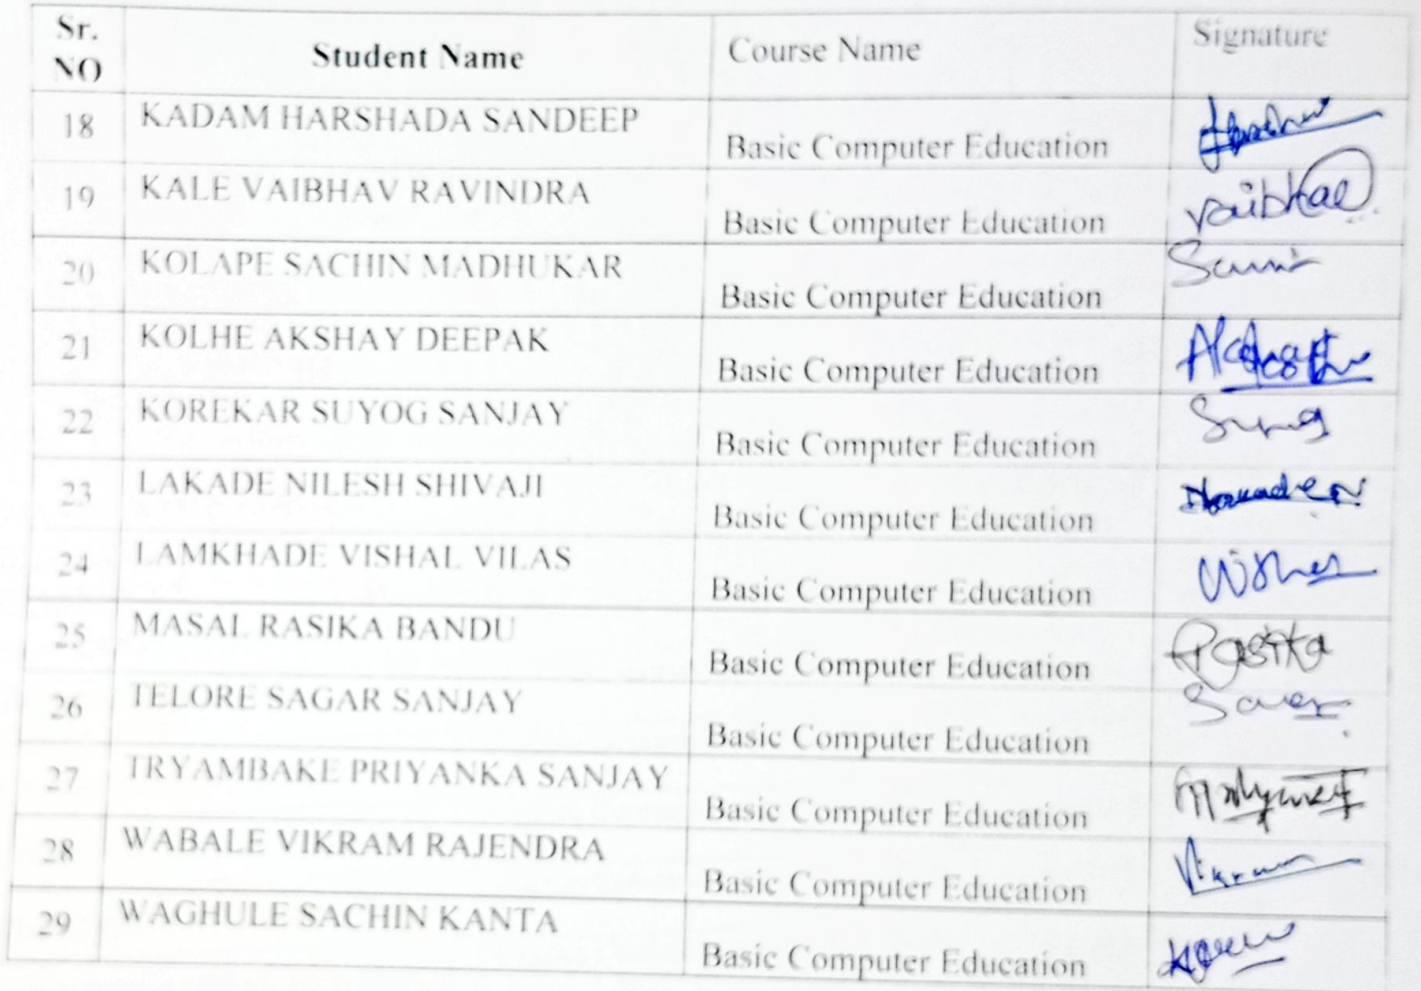 Sr. NO Student Name Course Name Signature
18 KADAM HARSHADA SANDEEP Basic Computer Education
19 KALE VAIBHAV RAVINDRA Basic Computer Education vaibhav
20 KOLAPE SACHIN MADHUKAR Basic Computer Education
21 KOLHE AKSHAY DEEPAK Basic Computer Education
22 KOREKAR SUYOG SANJAY Basic Computer Education
23 LAKADE NILESH SHIVAJI Basic Computer Education
24 LAMKHADE VISHAL VILAS Basic Computer Education
25 MASAL RASIKA BANDU Basic Computer Education Rasika
26 TELORE SAGAR SANJAY Basic Computer Education
27 TRYAMBAKE PRIYANKA SANJAY Basic Computer Education
28 WABALE VIKRAM RAJENDRA Basic Computer Education Vikram
29 WAGHULE SACHIN KANTA Basic Computer Education